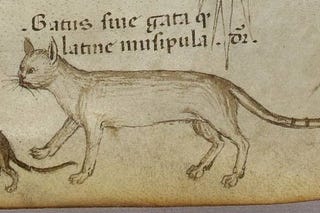 .Gatus siue gata q̈
latine musipula . dr̄.